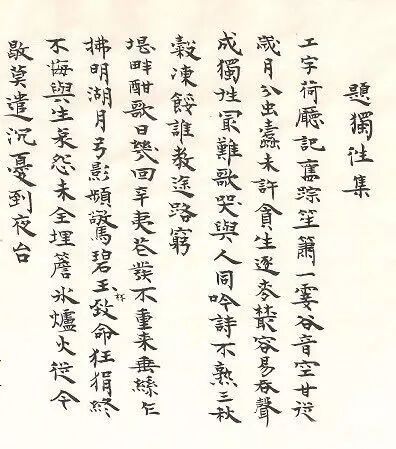 題獨往集
工字荷廳記舊踪笙簫一霎谷音空甘從
歲月分虫蠹未許貪生逐麥叢容易吞聲
成獨往冣難歌哭與人同吟詩不熟三秋
穀凍餒誰教途路窮
堤畔酣歌日幾回辛夷花發不重來垂絲乍
拂明湖月弓影頻驚碧玉杯致命狂狷終
不悔與生哀怨未全埋簷冰爐火從今
莫遣沉憂到夜台